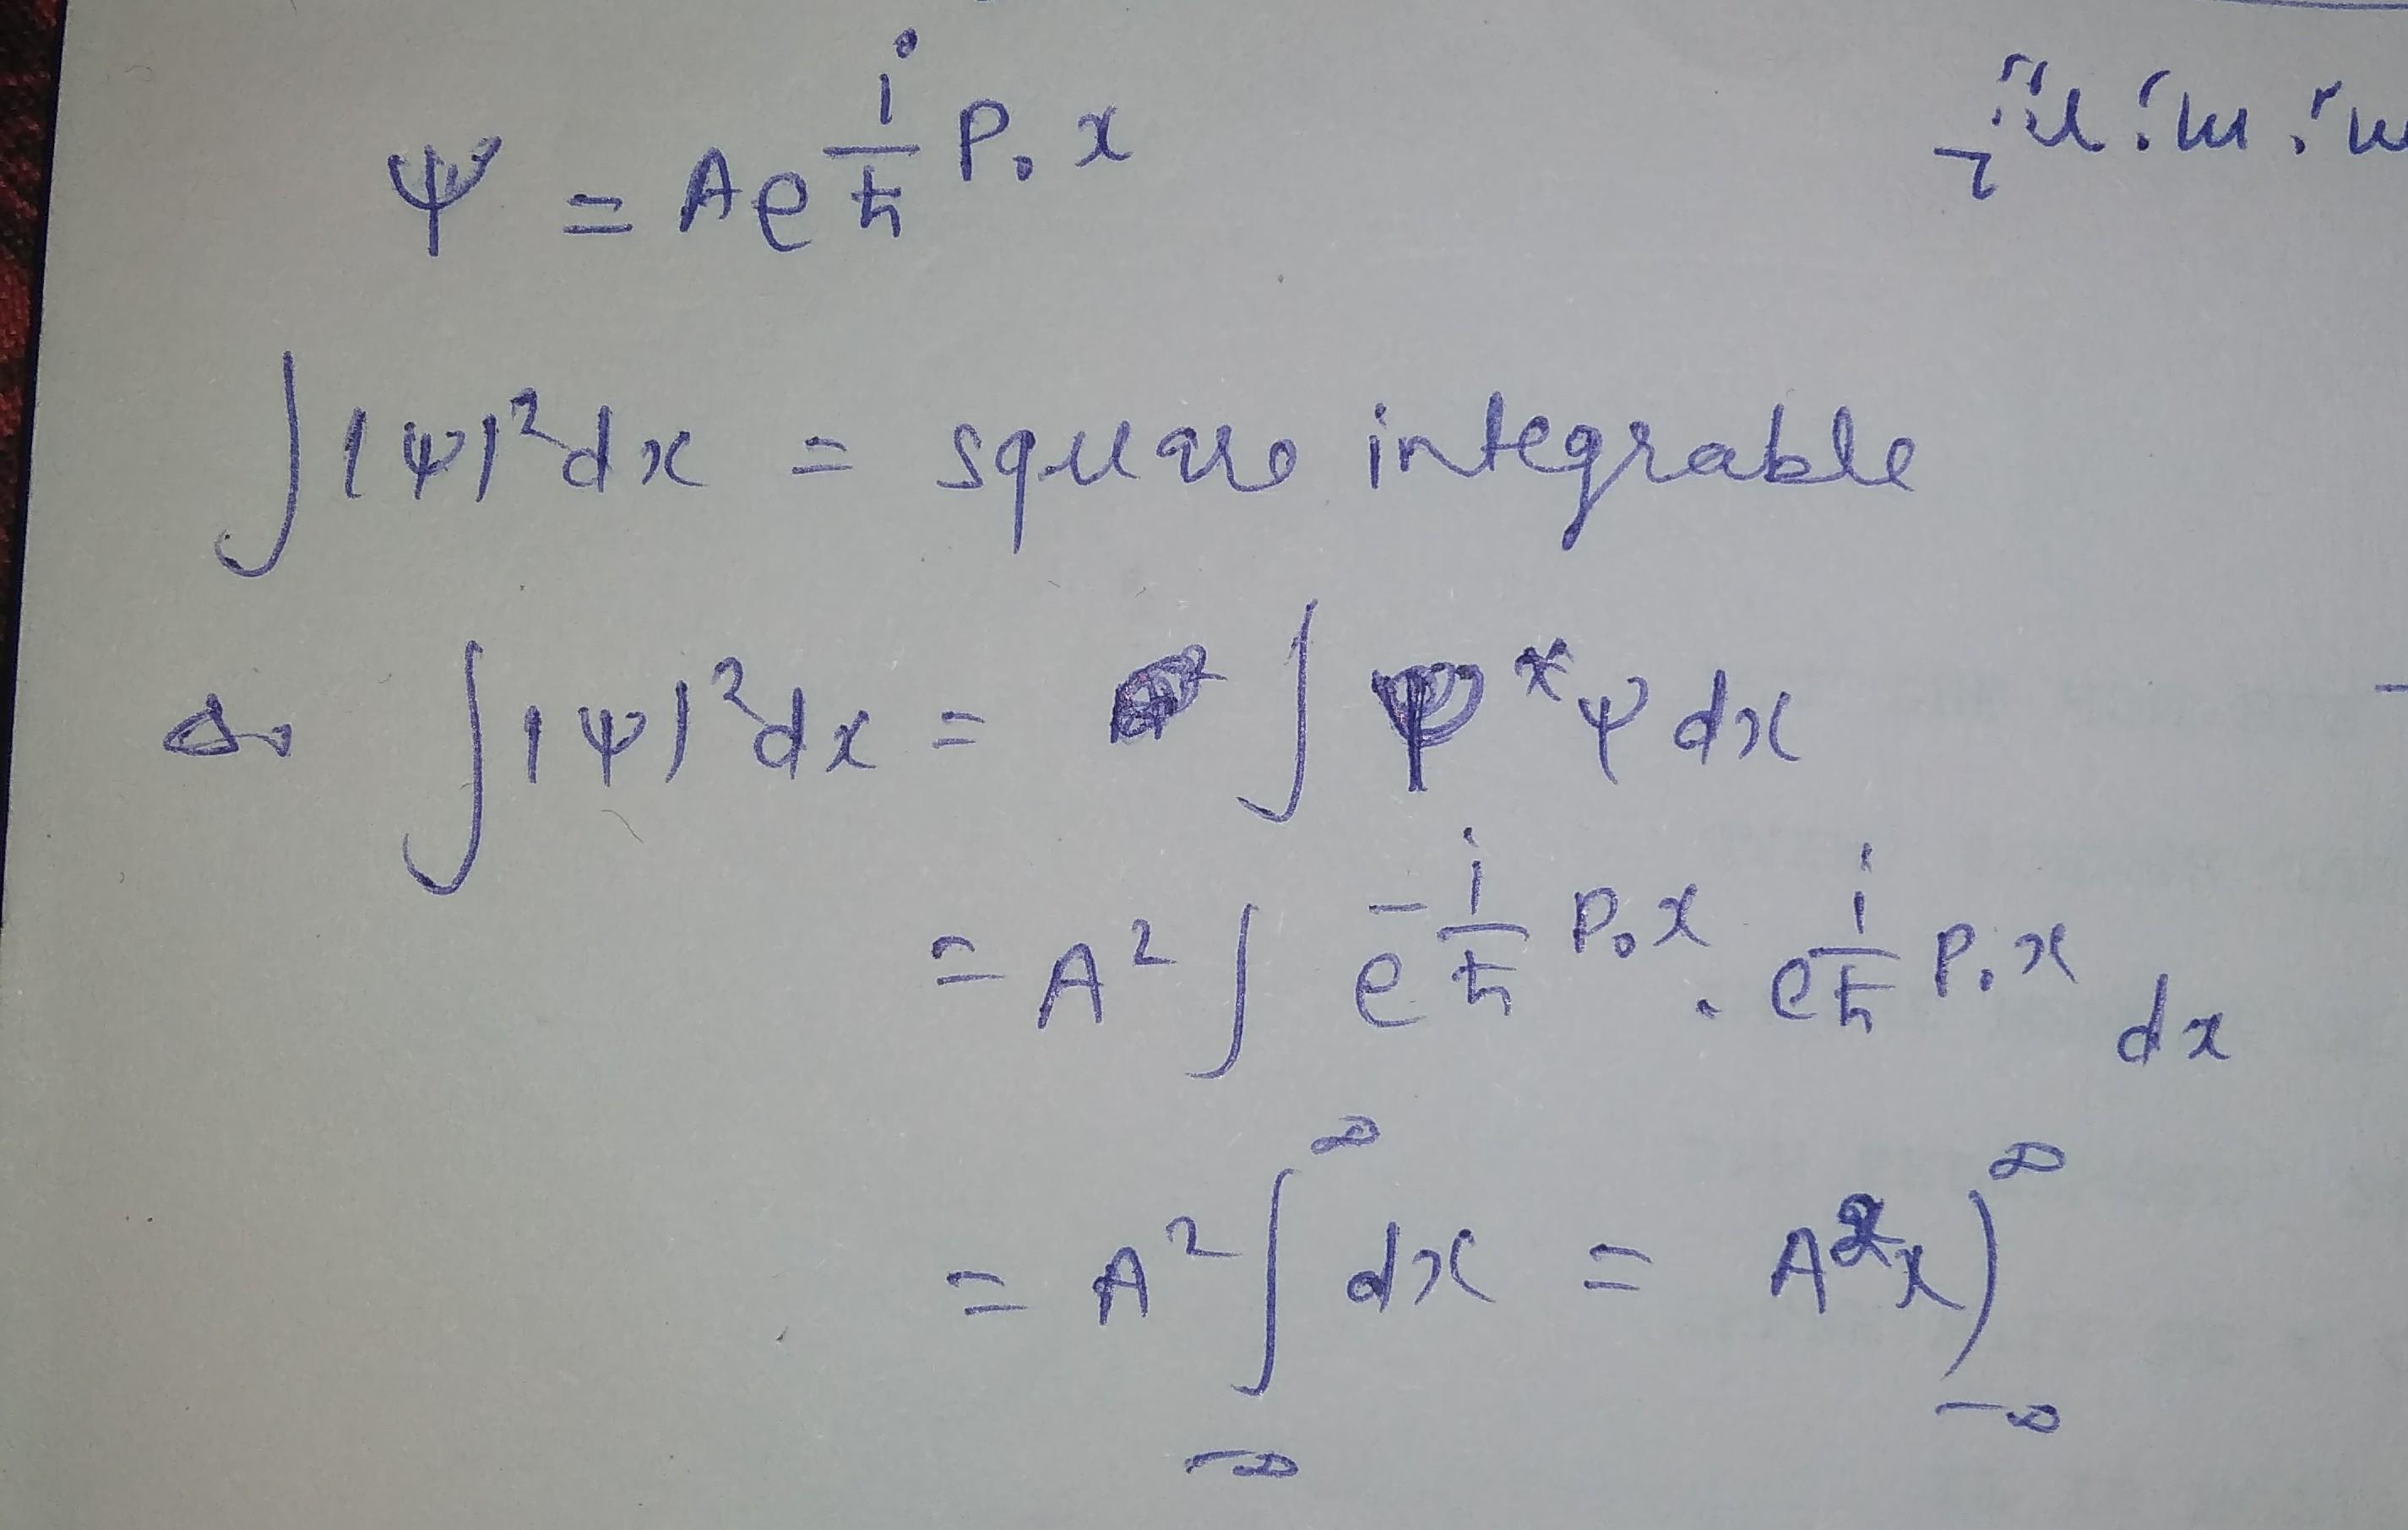 ψ = Ae^{i/ħ P₀x}
∫|ψ|²dx = square integrable
∫|ψ|²dx = ∫ψ*ψdx
= A²∫e^{-i/ħ P₀x} . e^{i/ħ P₀x} dx
= A²∫_{-∞}^{∞} dx = A²x)_{-∞}^{∞}